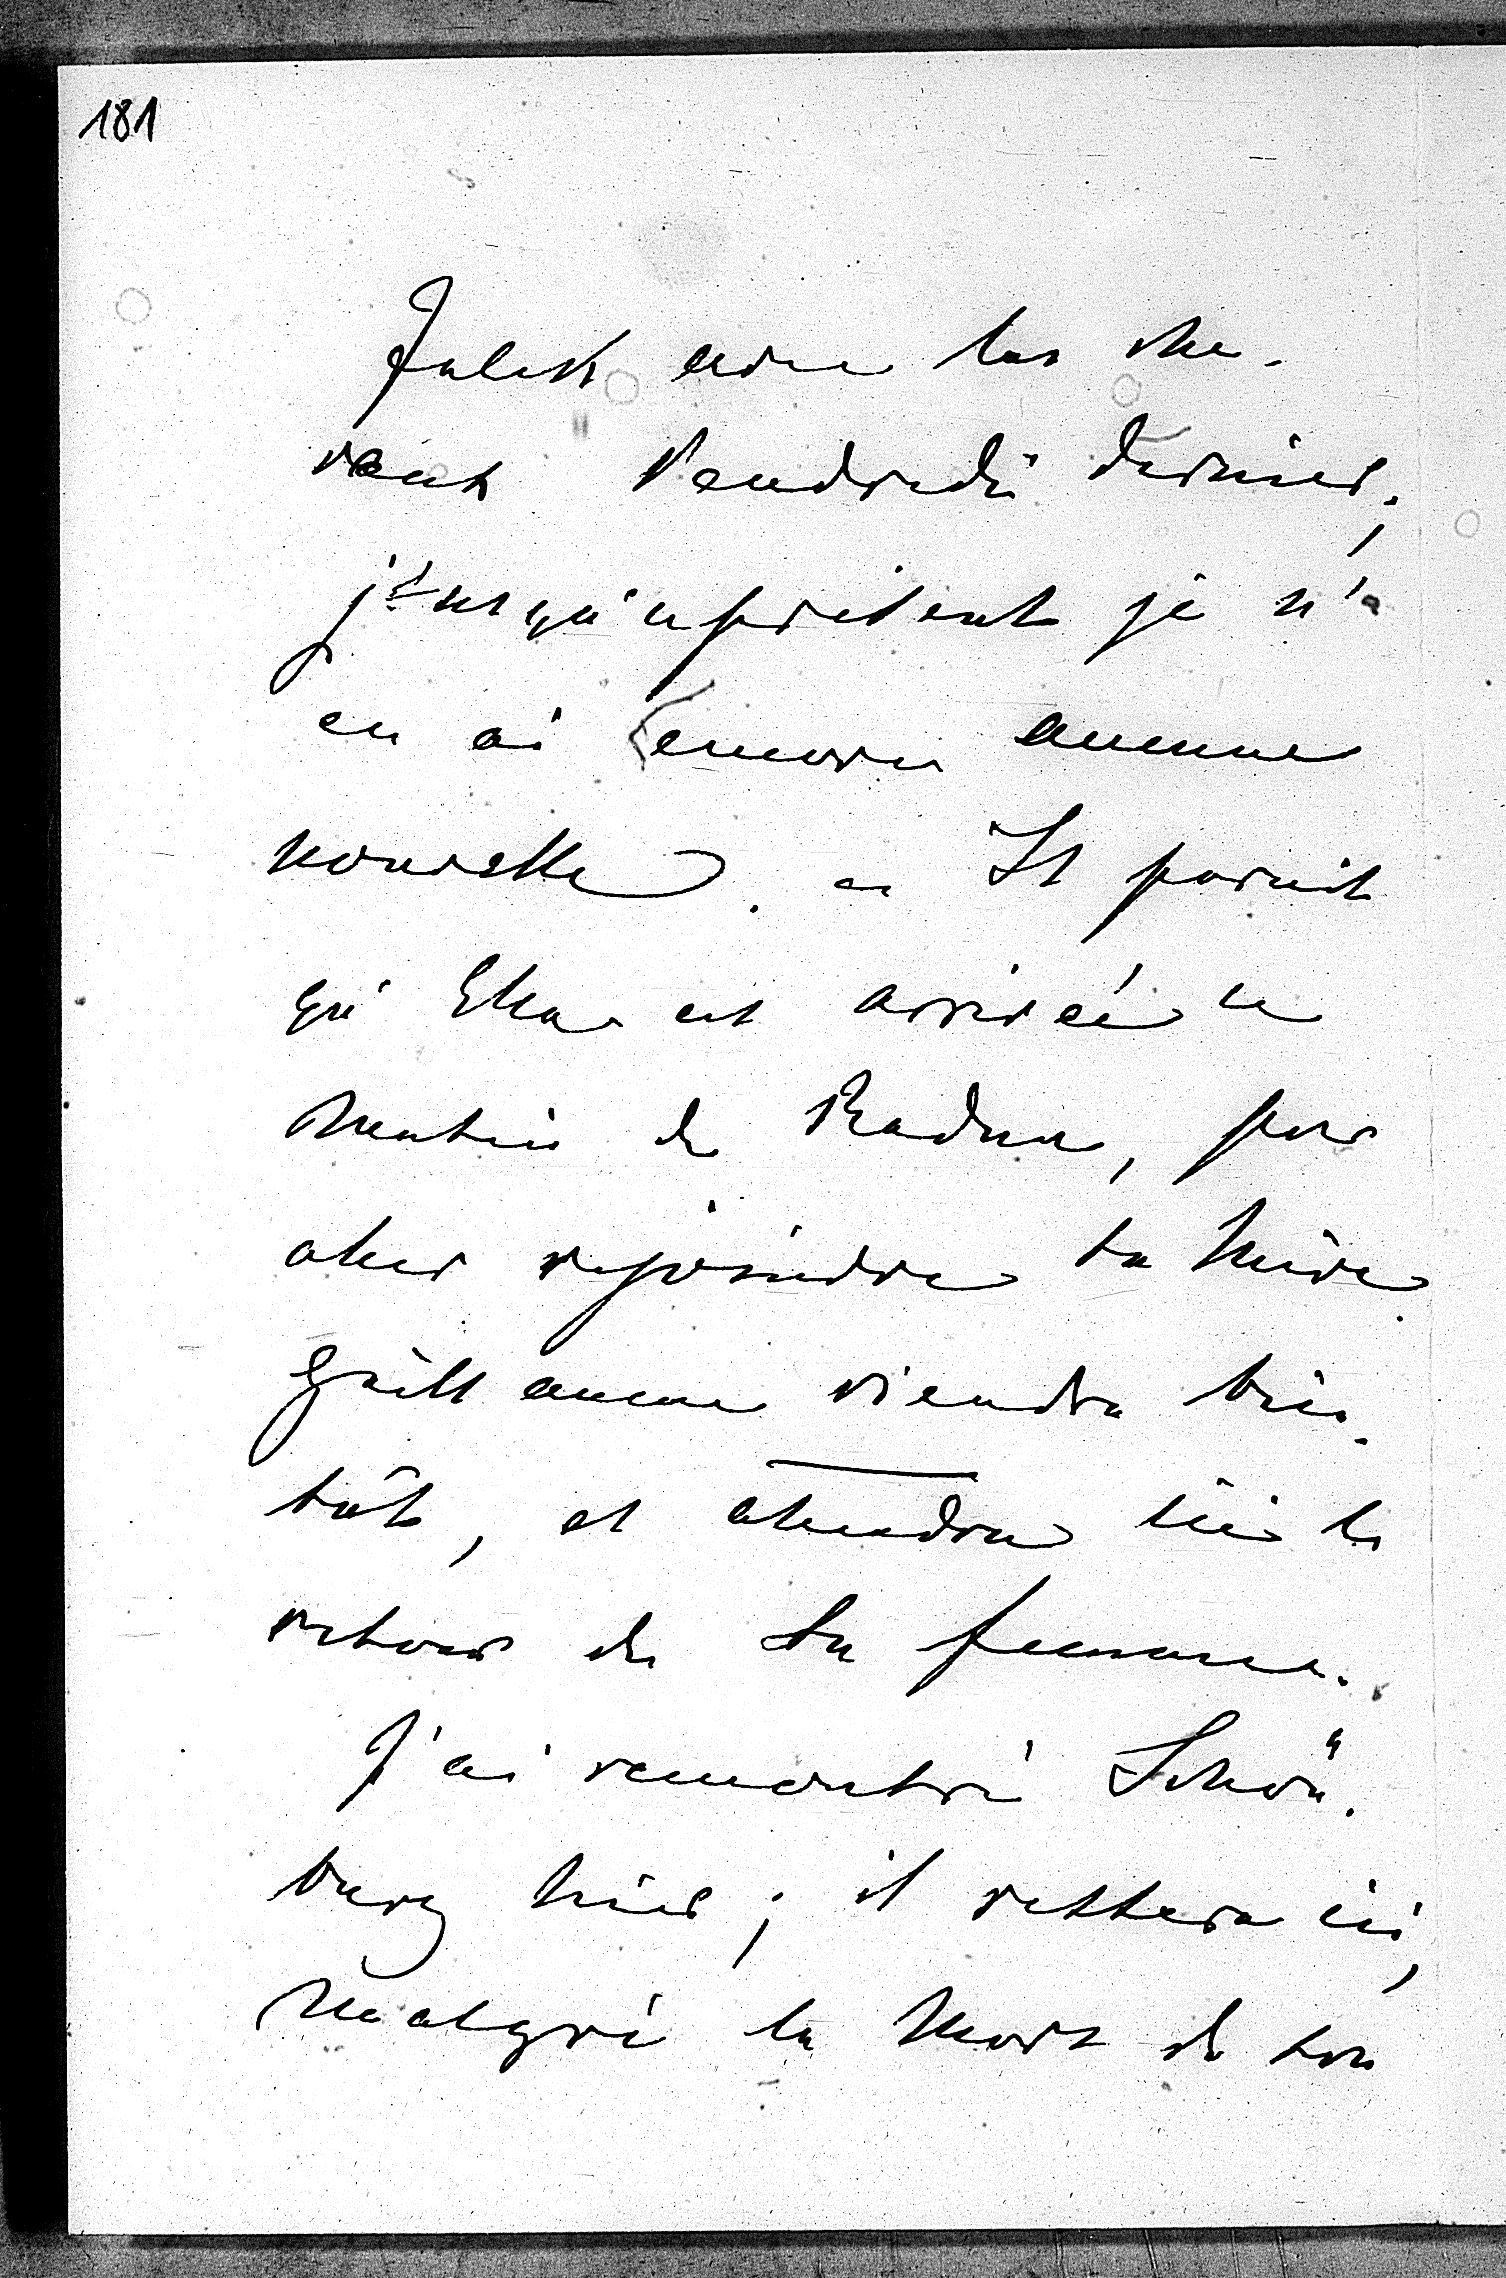 181
Julest avec les che-
vaux Vendredi dernier;
jusqu'a present je n'
en ai encore aucune
nouvelle. - Il parait
qu' Elka est arrivée ce
matin de Baden, pour
aller rejoindre ta Mère.
Guillaume viendra bien-
tôt, et attendra ici le
retour de ta femme.
J'ai rencontré Schön-
burg hier; il restera ici,
malgré la mort de son